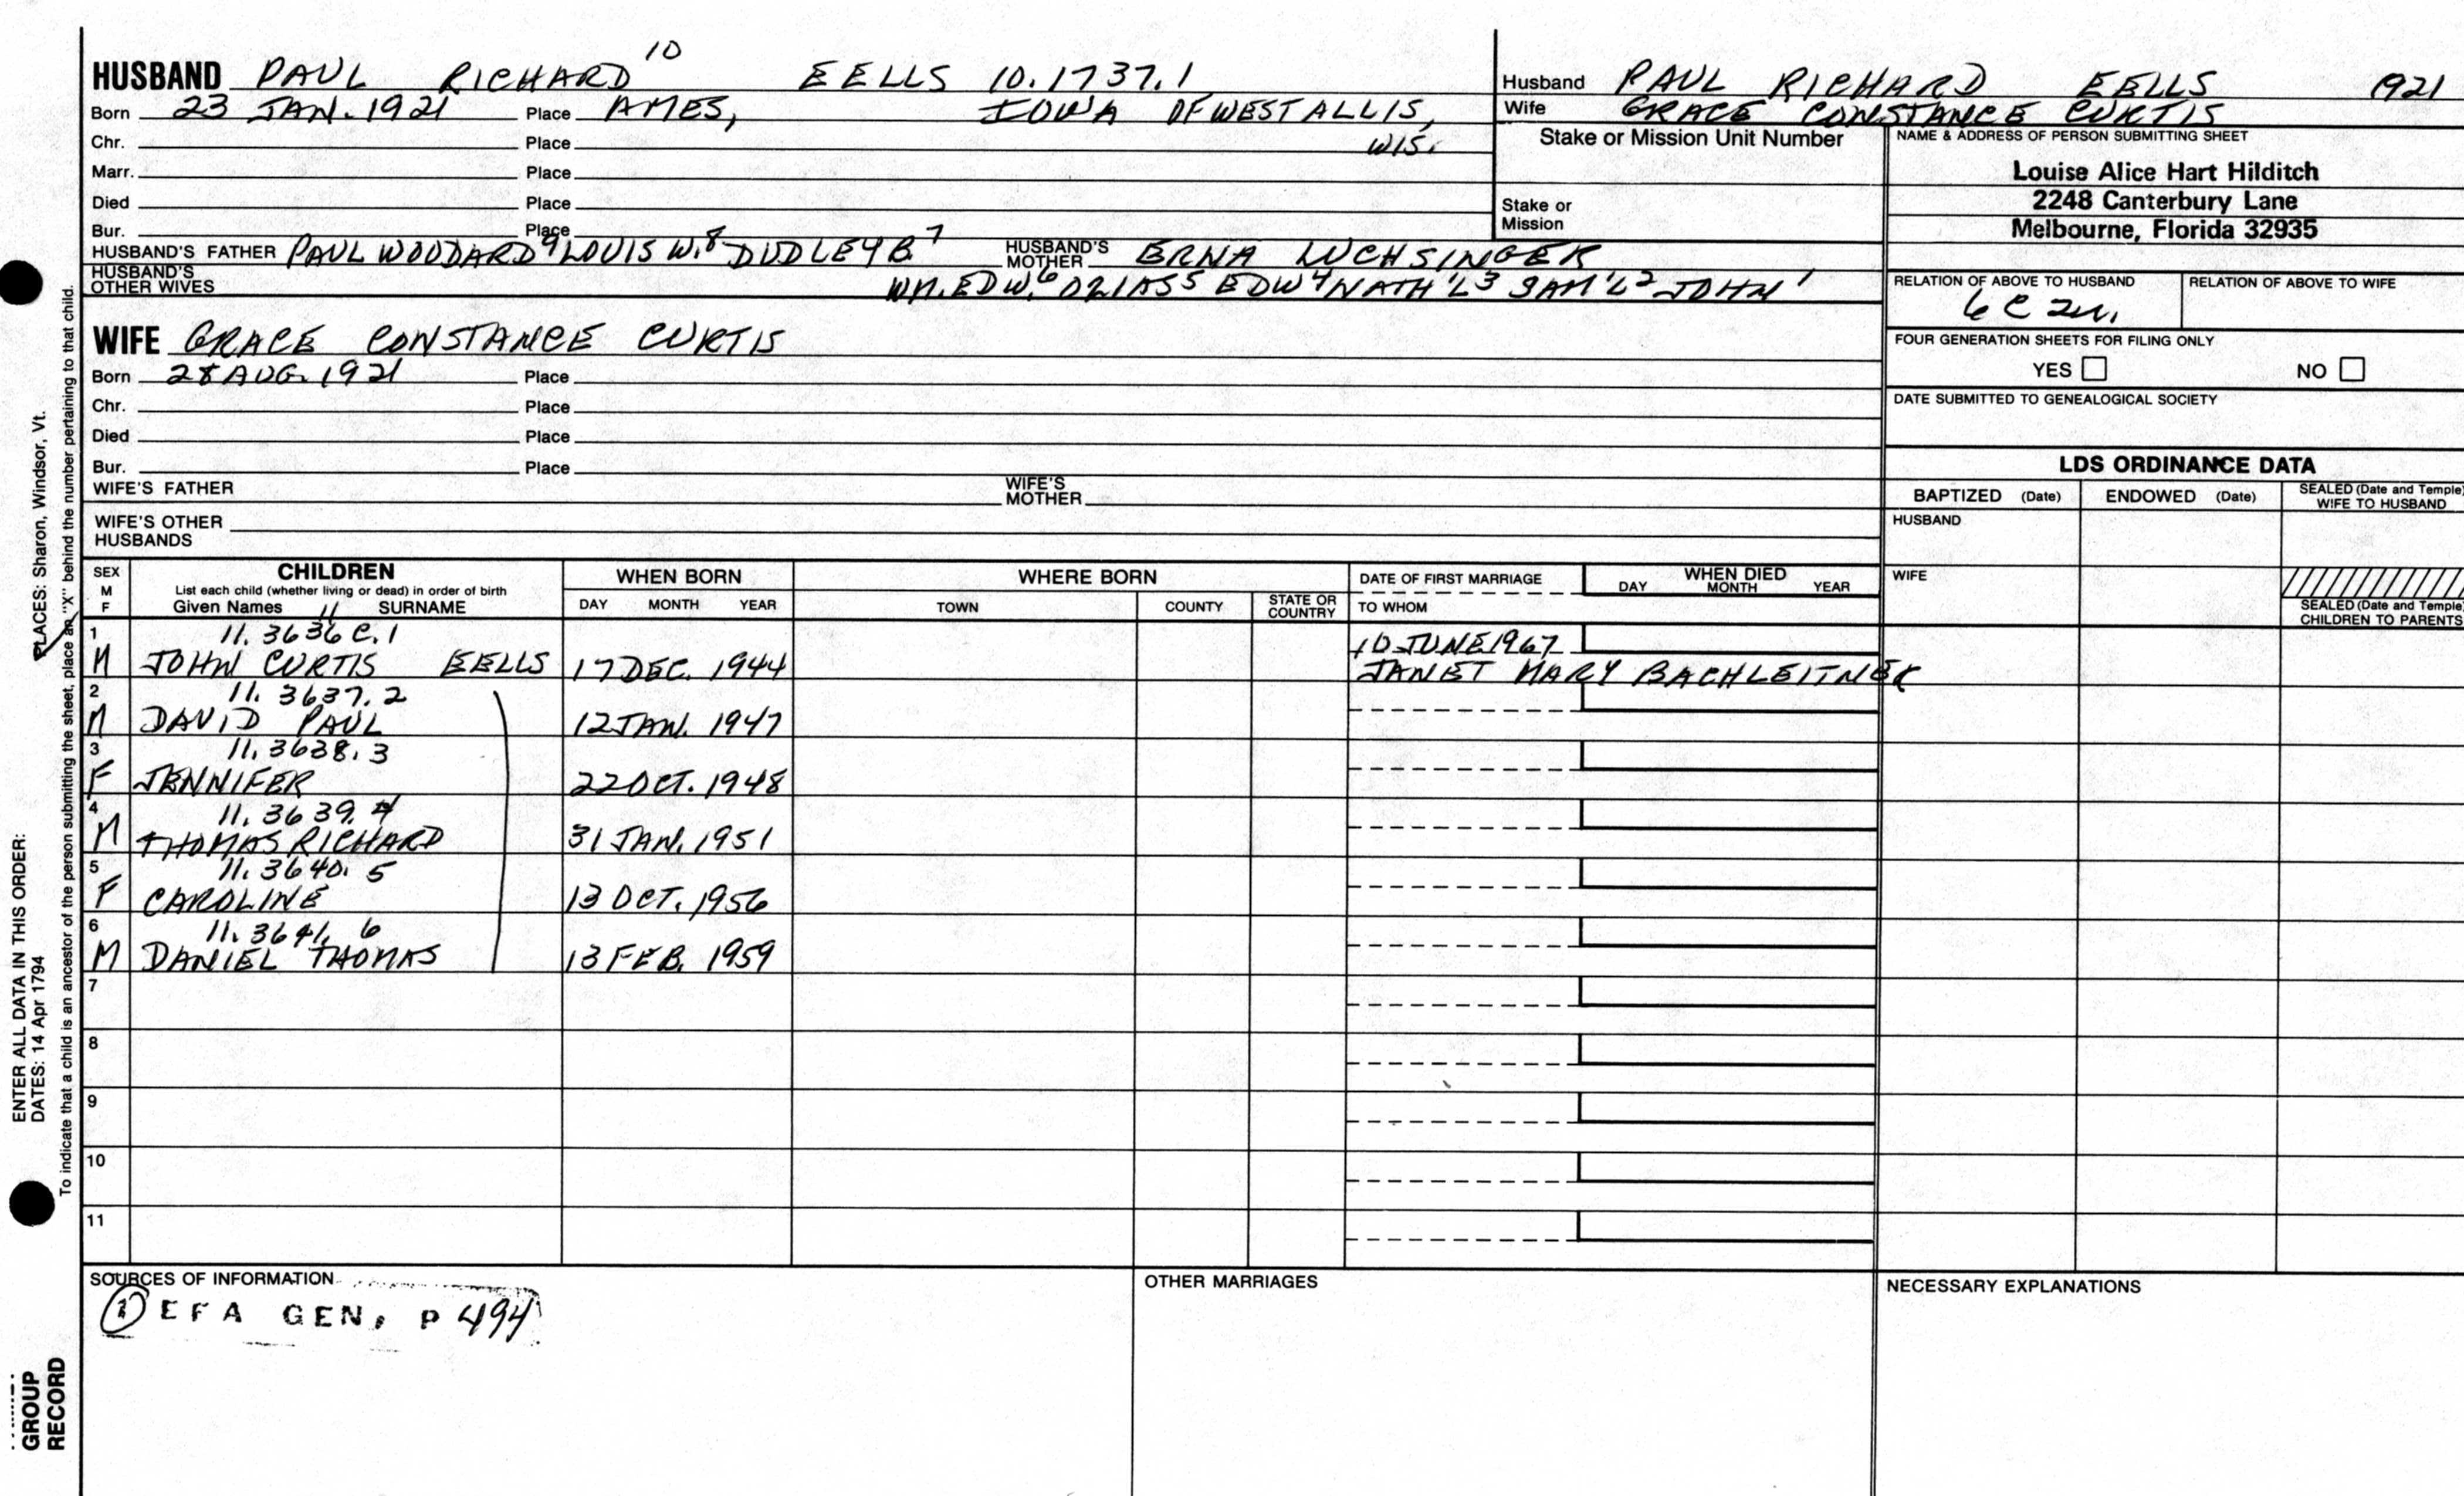 HUSBAND PAUL RICHARD 10 EELLS 10.1737.1
Born 23 JAN. 1921 Place AMES, IOWA OF WEST ALLIS,
Chr. Place WIS.
Marr. Place
Died Place
Bur. Place
HUSBAND'S FATHER PAUL WOODARD 9 LOUIS W. 8 DUDLEY B. 7 HUSBAND'S MOTHER ERNA LUCHSINGER
HUSBAND'S OTHER WIVES WM. EDW. 6 5 EDW 4 NATH'L 3 SAM'L 2 JOHN 1
WIFE GRACE CONSTANCE CURTIS
Born 28 AUG. 1921 Place
Chr. Place
Died Place
Bur. Place
WIFE'S FATHER WIFE'S MOTHER
WIFE'S OTHER HUSBANDS
Husband PAUL RICHARD EELLS 1921
Wife GRACE CONSTANCE CURTIS
Stake or Mission Unit Number
Stake or Mission
NAME & ADDRESS OF PERSON SUBMITTING SHEET
Louise Alice Hart Hilditch
2248 Canterbury Lane
Melbourne, Florida 32935
RELATION OF ABOVE TO HUSBAND RELATION OF ABOVE TO WIFE
6 C
FOUR GENERATION SHEETS FOR FILING ONLY
YES NO
DATE SUBMITTED TO GENEALOGICAL SOCIETY
LDS ORDINANCE DATA
BAPTIZED (Date) ENDOWED (Date) SEALED (Date and Temple) WIFE TO HUSBAND
HUSBAND
WIFE
SEALED (Date and Temple) CHILDREN TO PARENTS
SEX M F
CHILDREN
List each child (whether living or dead) in order of birth
Given Names 11 SURNAME
WHEN BORN
DAY MONTH YEAR
WHERE BORN
TOWN COUNTY STATE OR COUNTRY
DATE OF FIRST MARRIAGE
TO WHOM
WHEN DIED
DAY MONTH YEAR
1 11. 3636 C. 1 10 JUNE 1967
M JOHN CURTIS EELLS 17 DEC. 1944 JANET MARY BACHLEITNER
2 11. 3637. 2
M DAVID PAUL 12 JAN. 1947
3 11. 3638. 3
F JENNIFER 22 OCT. 1948
4 11. 3639. 4
M THOMAS RICHARD 31 JAN. 1951
5 11. 3640. 5
F CAROLINE 13 OCT. 1956
6 11. 3641. 6
M DANIEL THOMAS 13 FEB. 1959
7
8
9
10
11
SOURCES OF INFORMATION
1 EFA GEN, P 494
OTHER MARRIAGES
NECESSARY EXPLANATIONS
ENTER ALL DATA IN THIS ORDER:
DATES: 14 Apr 1794
PLACES: Sharon, Windsor, Vt.
To indicate that a child is an ancestor of the person submitting the sheet, place an "X" behind the number pertaining to that child.
GROUP
RECORD